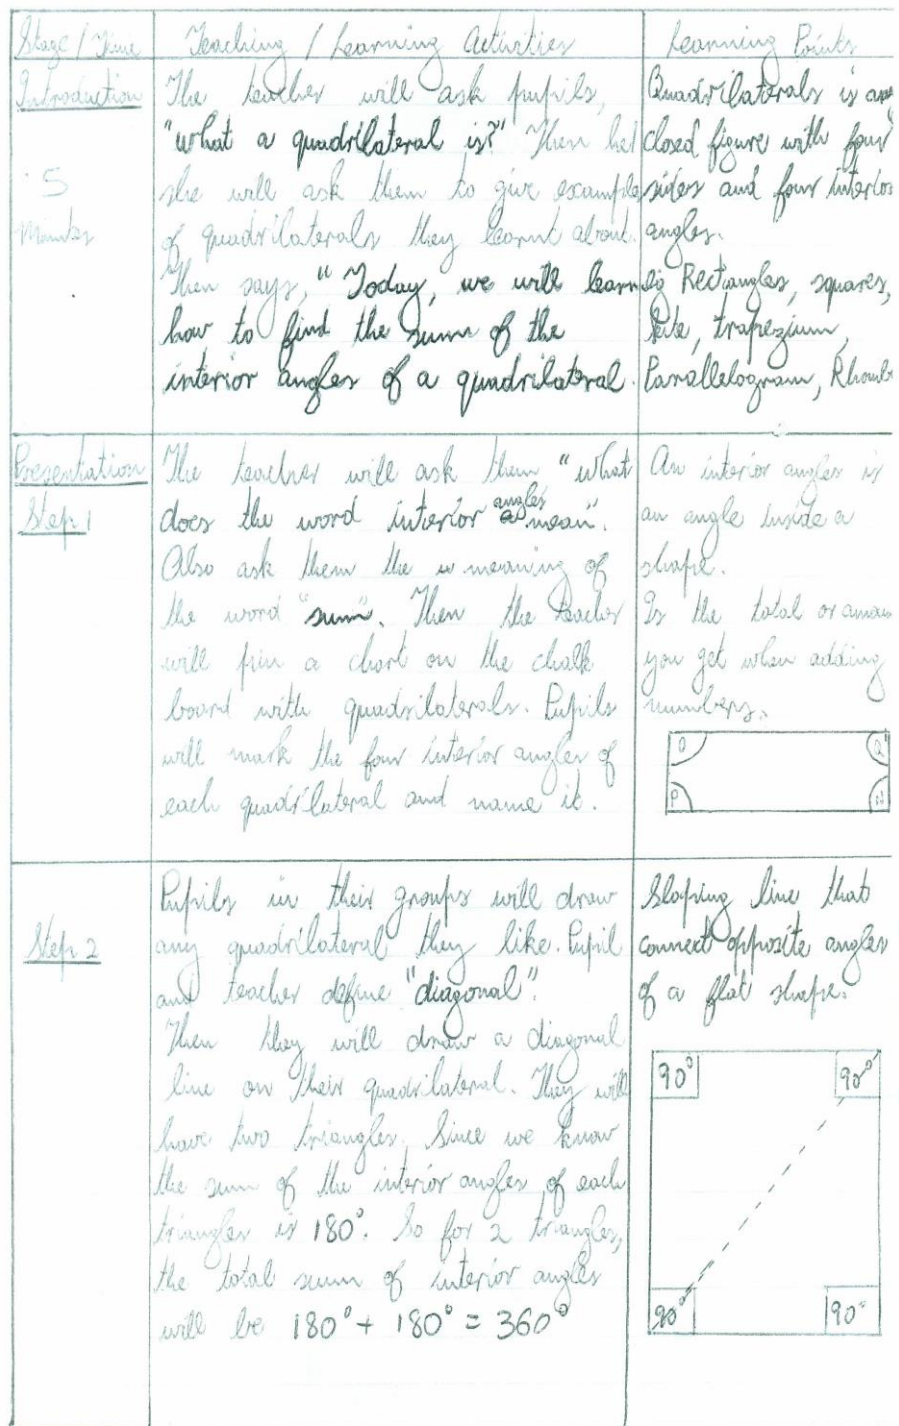 Stage / Time
Teaching / Learning Activities
Learning Points
Introduction
5
Minutes
The teacher will ask pupils,
"what a quadrilateral is?" Then he/
she will ask them to give example
of quadrilaterals they learnt about.
Then says, "Today, we will learn
how to find the sum of the
interior angles of a quadrilateral.
Quadrilaterals is any
closed figure with four
sides and four interior
angles.
eg Rectangles, squares,
kite, trapezium,
Parallelogram, Rhomb
Presentation
Step 1
The teacher will ask them "what
does the word interior angles mean".
Also ask them the meaning of
the word "sum". Then the teacher
will pin a chart on the chalk
board with quadrilaterals. Pupils
will mark the four interior angles of
each quadrilateral and name it.
An interior angles is
an angle inside a
shape.
Is the total or amou
you get when adding
numbers.
O
Q
P
N
Step 2
Pupils in their groups will draw
any quadrilateral they like. Pupil
and teacher define "diagonal".
Then they will draw a diagonal
line on their quadrilateral. They will
have two triangles. Since we know
the sum of the interior angles of each
triangles is 180°. So for 2 triangles,
the total sum of interior angles
will be 180° + 180° = 360°
Sloping line that
connect opposite angles
of a flat shape.
90°
90°
90°
90°